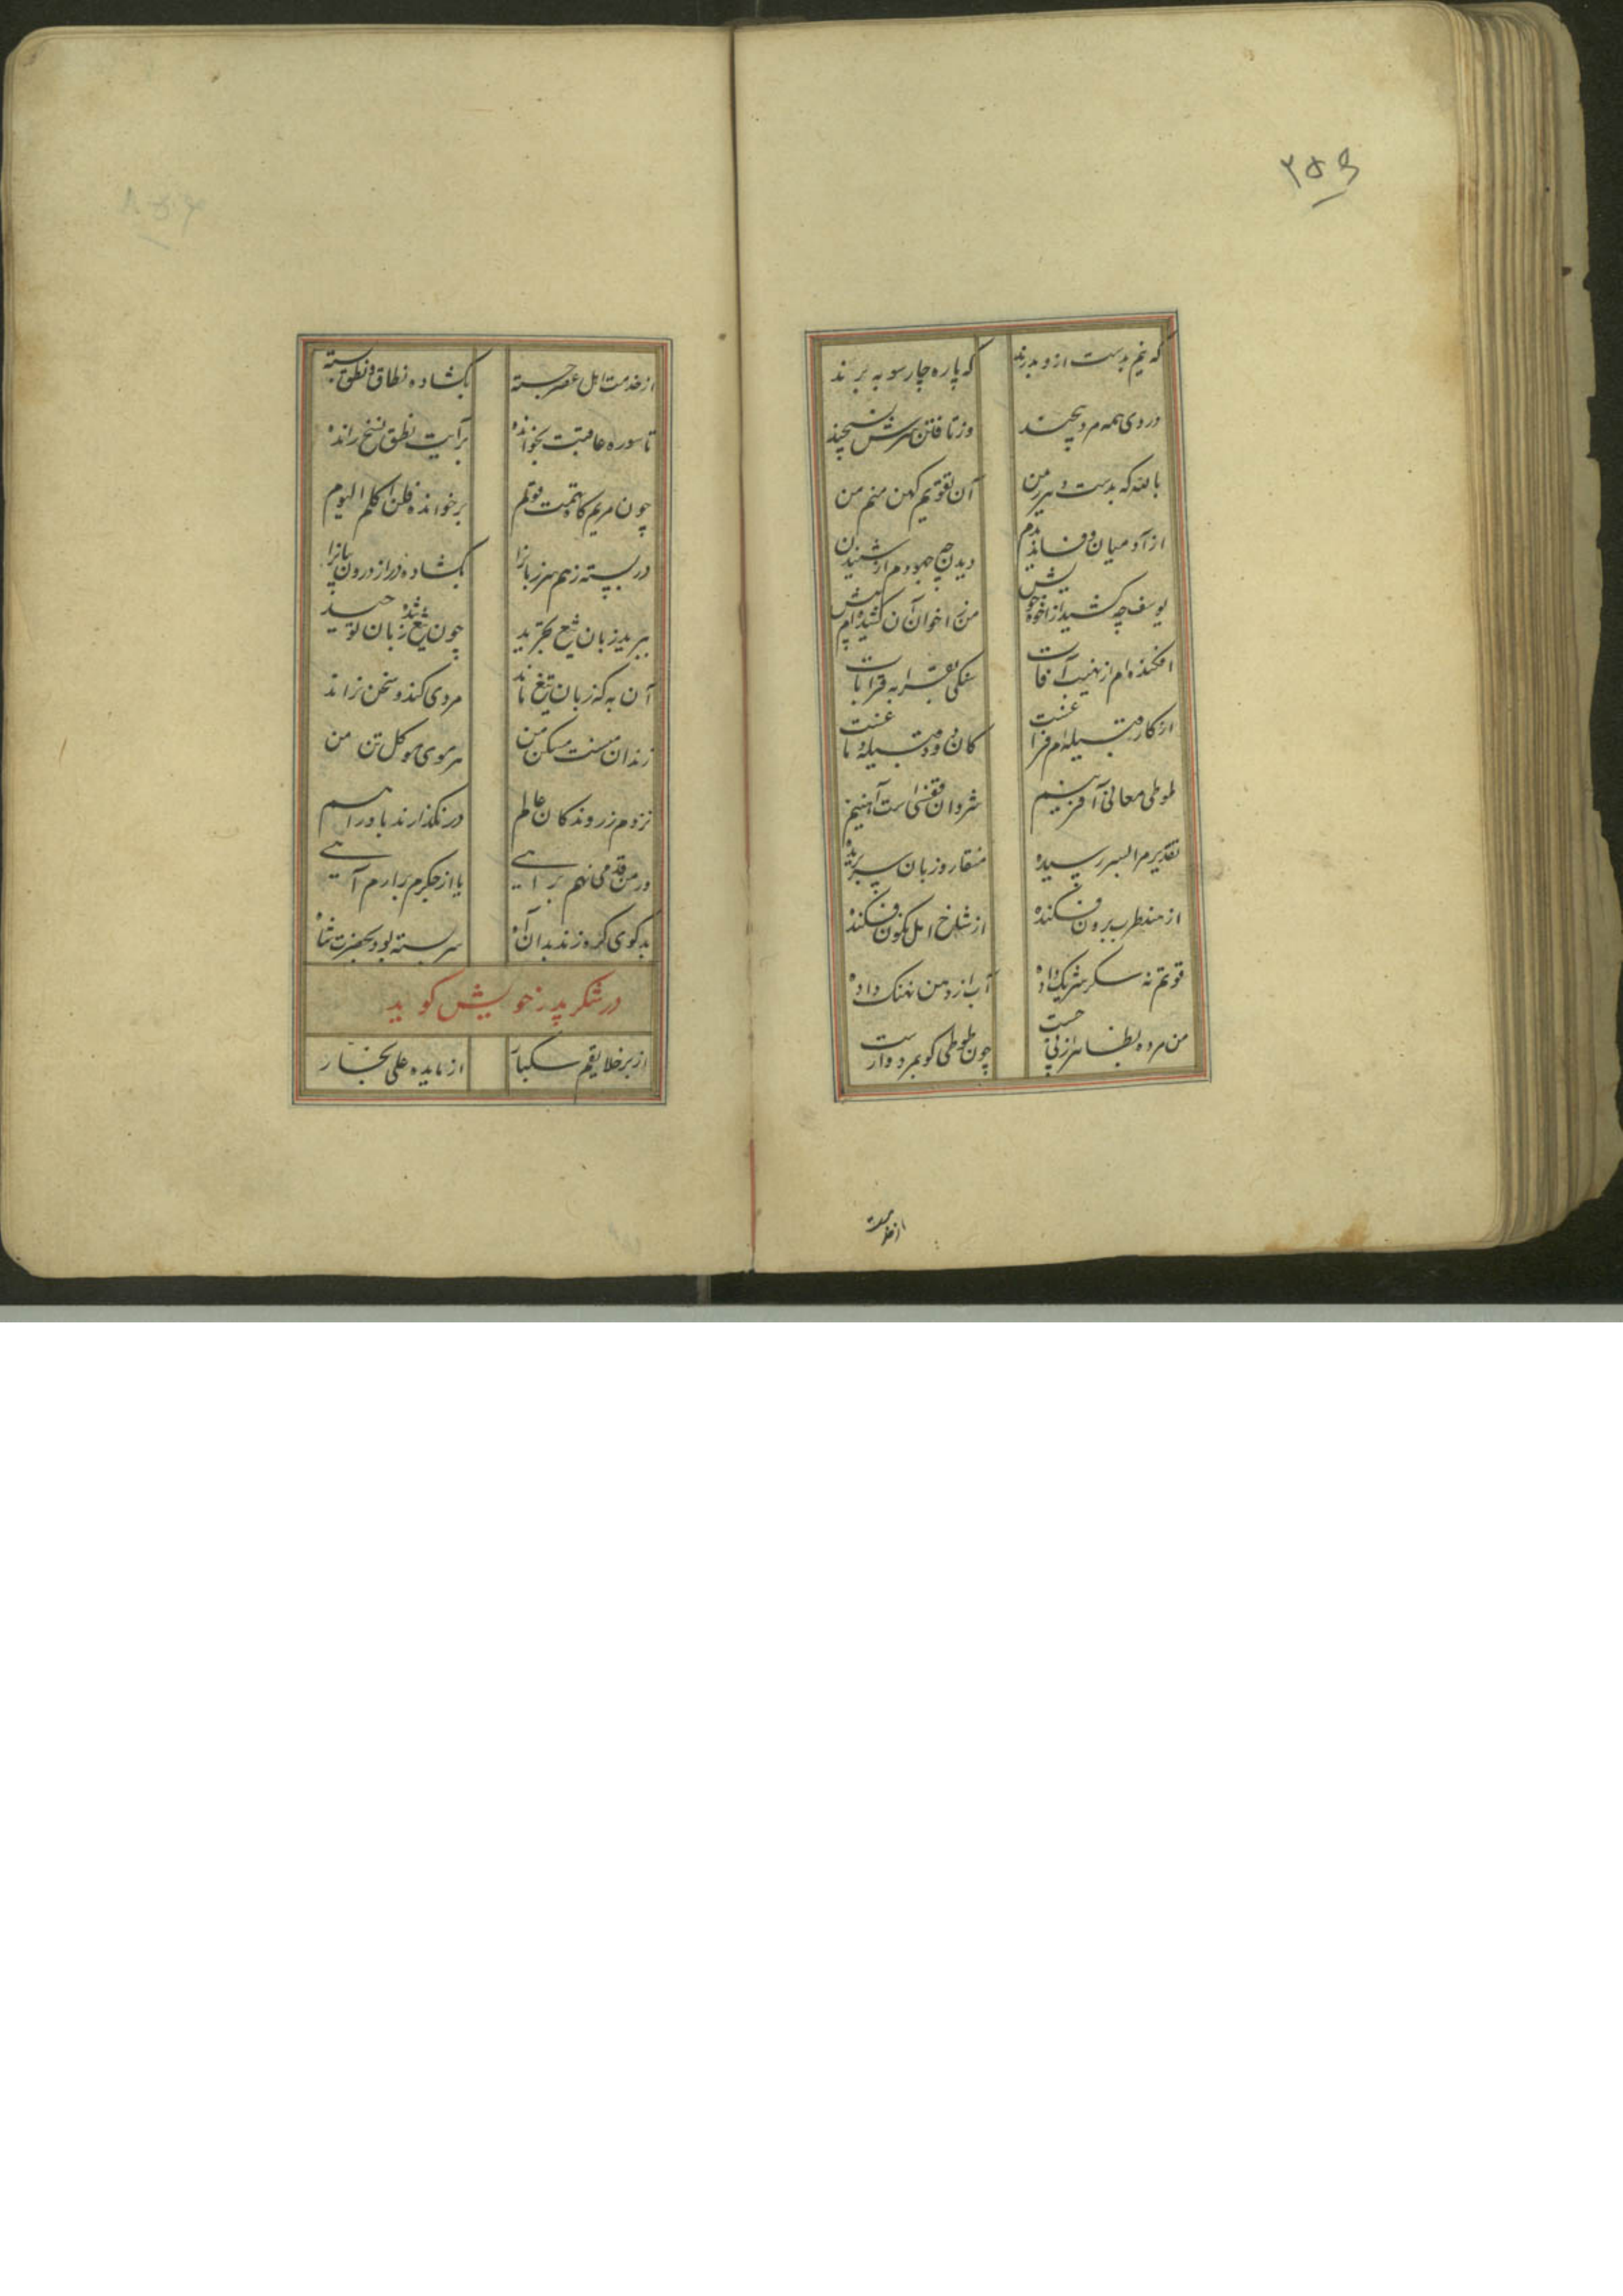 ۲۵۹
که نیم بدست ازو بدرند که پاره چارسو به برند
در وی همه مرد پیچند وز تافتن سرش نسپیچند
بالله که بدست دهر من آن تقویم کهن منم من
از آدمیان وفا ندیدم دیدن چه بود هم از شنیدن
یوسف چه کشید از اخوه خویش من ز اخوان آن کشیده‌ام پیش
افکنده‌ام از نهیب آفات سنگی به قرابه قرابات
از کار قبیله‌ام فراغست کان دود قبیله
طوطی معانی آفرینیم شروان قفسی است آهنینم
تقدیر مرا بسر رسیده منقار و زبان سر بریده
از هند طرب برون فکنده از شاخ امل نگون فکنده
قوتم نه سکر شرنک داده آب از دهن نهنک داده
من مرده بظاهر از پی جست چون طوطی کو بمرد وارست
از خدمت
از خدمت اهل عصر جسته بگشاده نطاق و نطق بسته
تا سوره عافیت بخوانده بر آیت نطق نسخ رانده
چون مریم کاه تهمت قوم برخوانده فلن اکلم الیوم
در بسته ز هم سر زبانرا بگشاده در از درون
ببرید زبان شمع تجرید چون شمع زبان توحید
آن به که زبان تیغ ماند مردی کند و سخن نراند
زندان منست مسکن من هر موی موکل تن من
نزدم ز روندکان عالم در نگذارند باورا هم
ور من قدمی نهم براهی یا از جکرم برارم آهی
بدکوی کره زند بدان آه سر بسته بود بحضرت شاه
در شکر پدر خویش کوید
از بر خلایقم سبکبار از مایده علی نجار